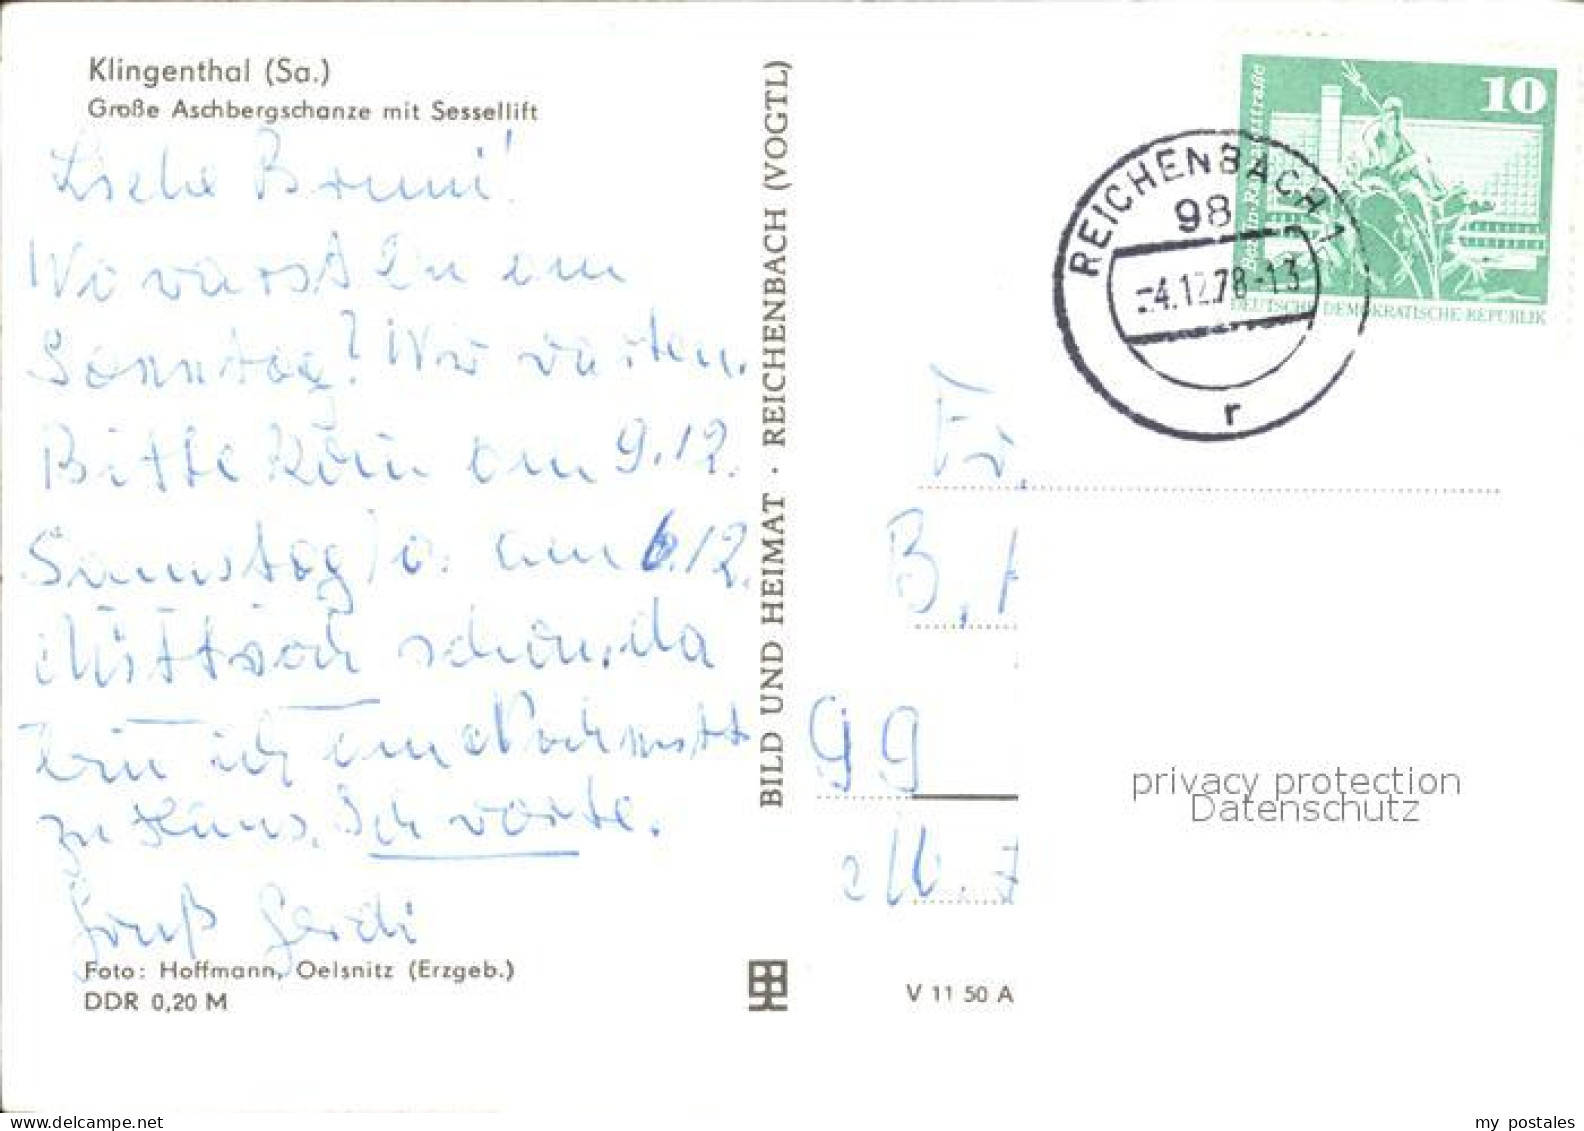 Klingenthal (Sa.)
Große Aschbergschanze mit Sessellift
Liebe Bruni!
Wo warst Du am
Sonntag? Wir warten.
Bitte komm am 9.12.
Samstag o. am 6.12.
Mittwoch schon, da
bin ich am Nachmitt
zu Haus. Ich warte.
Gruß Gerdi
Foto: Hoffmann, Oelsnitz (Erzgeb.)
DDR 0,20 M
BILD UND HEIMAT · REICHENBACH (VOGTL)
V 11 50 A
10
Berlin-Rathausstraße
DEUTSCHE DEMOKRATISCHE REPUBLIK
REICHENBACH 1
98
-4.12.78-13
r
Fr.
B.
99
privacy protection
Datenschutz
www.delcampe.net
my postales